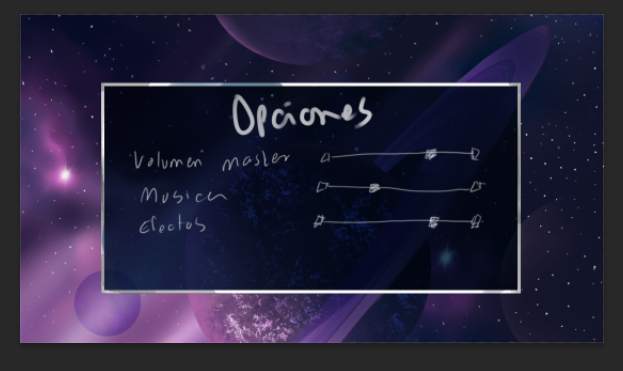 Opciones
Volumen master
Musica
Efectos